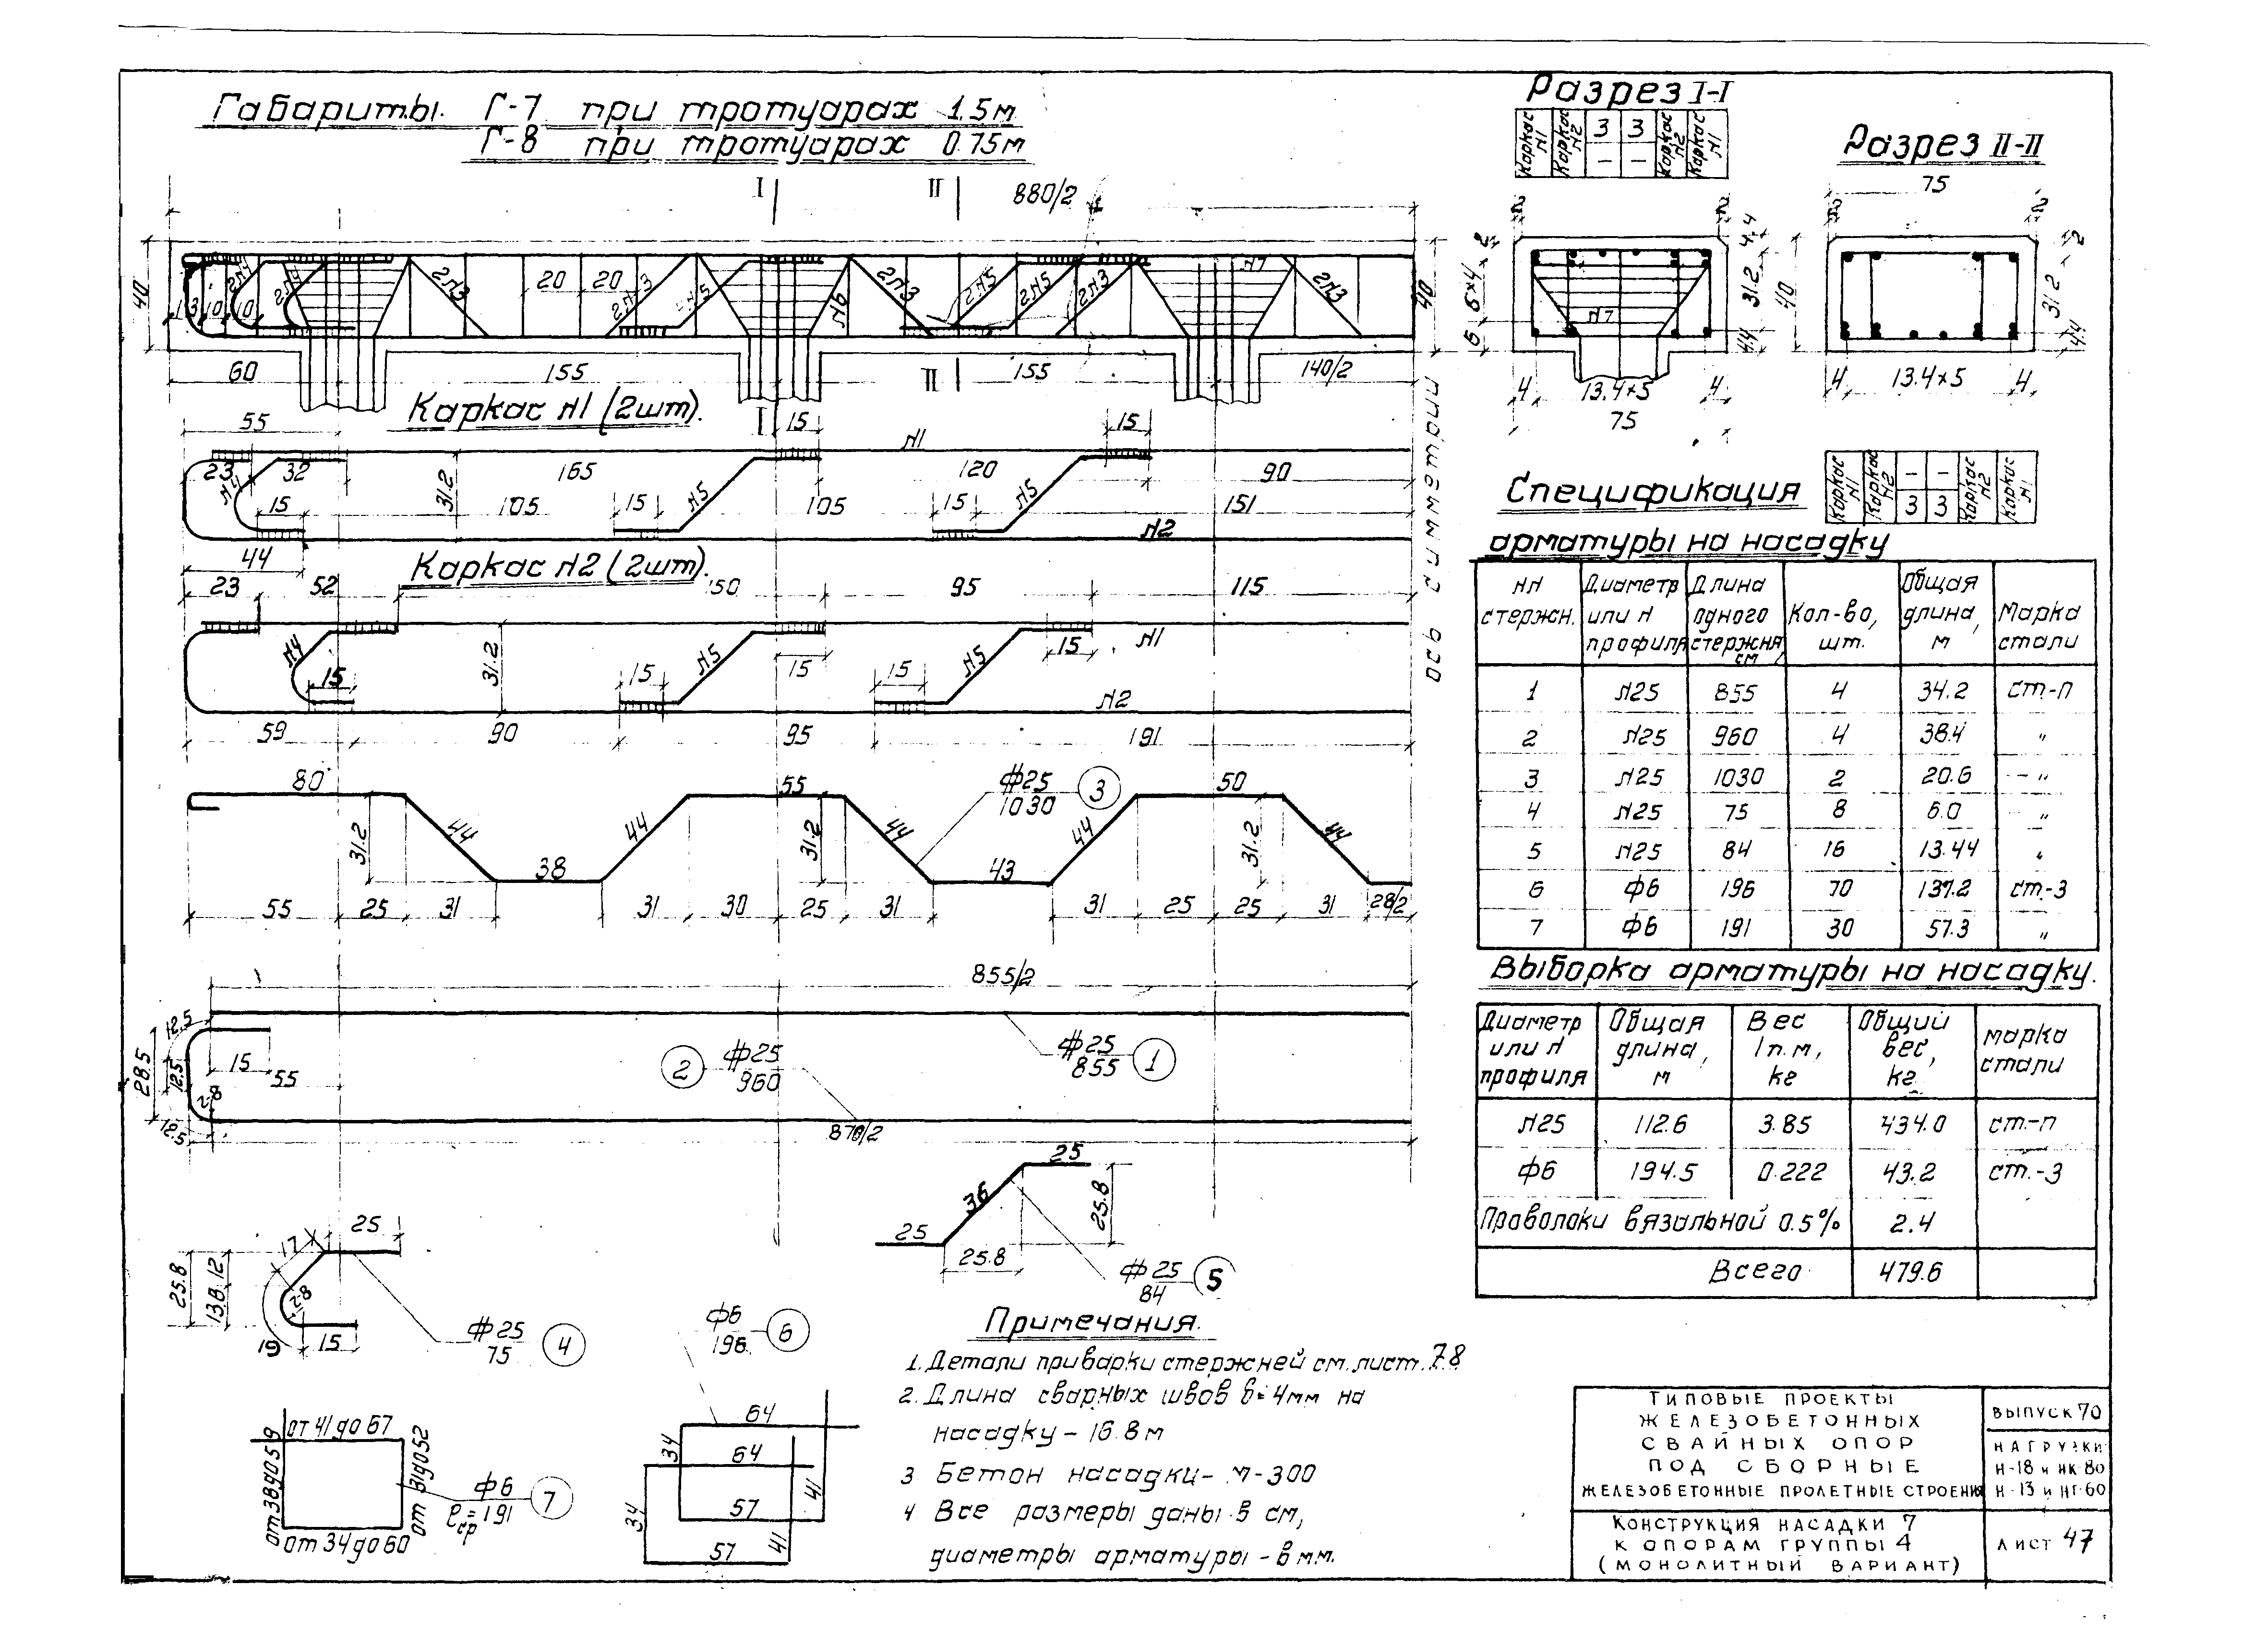 Габариты Г-7 при тротуарах 1.5м
Г-8 при тротуарах 0.75м
I II 880/2
40
20 20
2№3 2№3 №6 2№3 2№5 2№5 2№3 №7 2№3
13 10 10
40
60 155 II 155 140/2
ось симметрии
Каркас №1 (2шт).
55 I 15 15
№1
23 32 165 120 90
№4 31.2 №5 №5
15 105 15 105 15 151
№2
44
Каркас №2 (2шт).
23 52 150 95 115
№4 31.2 №5 №5 №1
15 15 15 15 15
№2
59 90 95 191
80 55 ф25 3 50
1030
31.2 44 44 31.2 44 44 31.2 44
38 43
55 25 31 31 30 25 31 31 25 25 31 28/2
855/2
12.5
28.5 12.5 15
55
2 ф25
960
ф25 1
855
r-8
12.5
870/2
25
36
25.8
25
25.8
ф25 5
84
25
17
25.8 13.8 12
r-8
19 15
ф25 4
75
ф6 6
196
от 41 до 67
от 38 до 59
от 31 до 52
от 34 до 60
ф6 7
ℓср=191
64
34 64
34 57 41
57 41
Разрез I-I
Каркас №1 Каркас №2 3 3 Каркас №2 Каркас №1
– –
2 2
2 4.4
6×4 31.2 40
№7
6 4.4
4 13.4×5 4
75
Разрез II-II
75
2 2
2
31.2
4.4
4 13.4×5 4
Каркас №1 Каркас №2 – – Каркас №2 Каркас №1
3 3
Спецификация
арматуры на насадку
№№ стержн. Диаметр или № профиля Длина одного стержня, см Кол-во, шт. Общая длина, м Марка стали
1 №25 855 4 34.2 ст-п
2 №25 960 4 38.4 "
3 №25 1030 2 20.6 –"
4 №25 75 8 6.0 "
5 №25 84 16 13.44 "
6 ф6 196 70 137.2 ст.-3
7 ф6 191 30 57.3 "
Выборка арматуры на насадку.
Диаметр или № профиля Общая длина, м Вес 1п.м, кг Общий вес, кг Марка стали
№25 112.6 3.85 434.0 ст.-п
ф6 194.5 0.222 43.2 ст.-3
Проволоки вязальной 0.5% 2.4
Всего 479.6
Примечания.
1. Детали приварки стержней см. лист. 78
2. Длина сварных швов б=4мм на
насадку – 16.8м
3 Бетон насадки – М-300
4 Все размеры даны в см,
диаметры арматуры – в мм.
ТИПОВЫЕ ПРОЕКТЫ
ЖЕЛЕЗОБЕТОННЫХ
СВАЙНЫХ ОПОР
ПОД СБОРНЫЕ
ЖЕЛЕЗОБЕТОННЫЕ ПРОЛЕТНЫЕ СТРОЕНИЯ
ВЫПУСК 70
НАГРУЗКИ
Н-18 и НК-80
Н-13 и НГ-60
КОНСТРУКЦИЯ НАСАДКИ 7
К ОПОРАМ ГРУППЫ 4
(МОНОЛИТНЫЙ ВАРИАНТ)
ЛИСТ 47